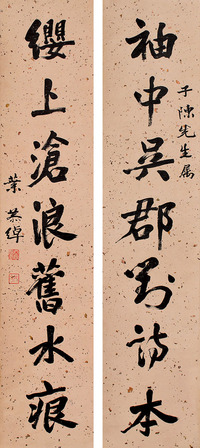 袖中吳郡新詩本
子陳先生屬
纓上滄浪舊水痕
葉恭綽